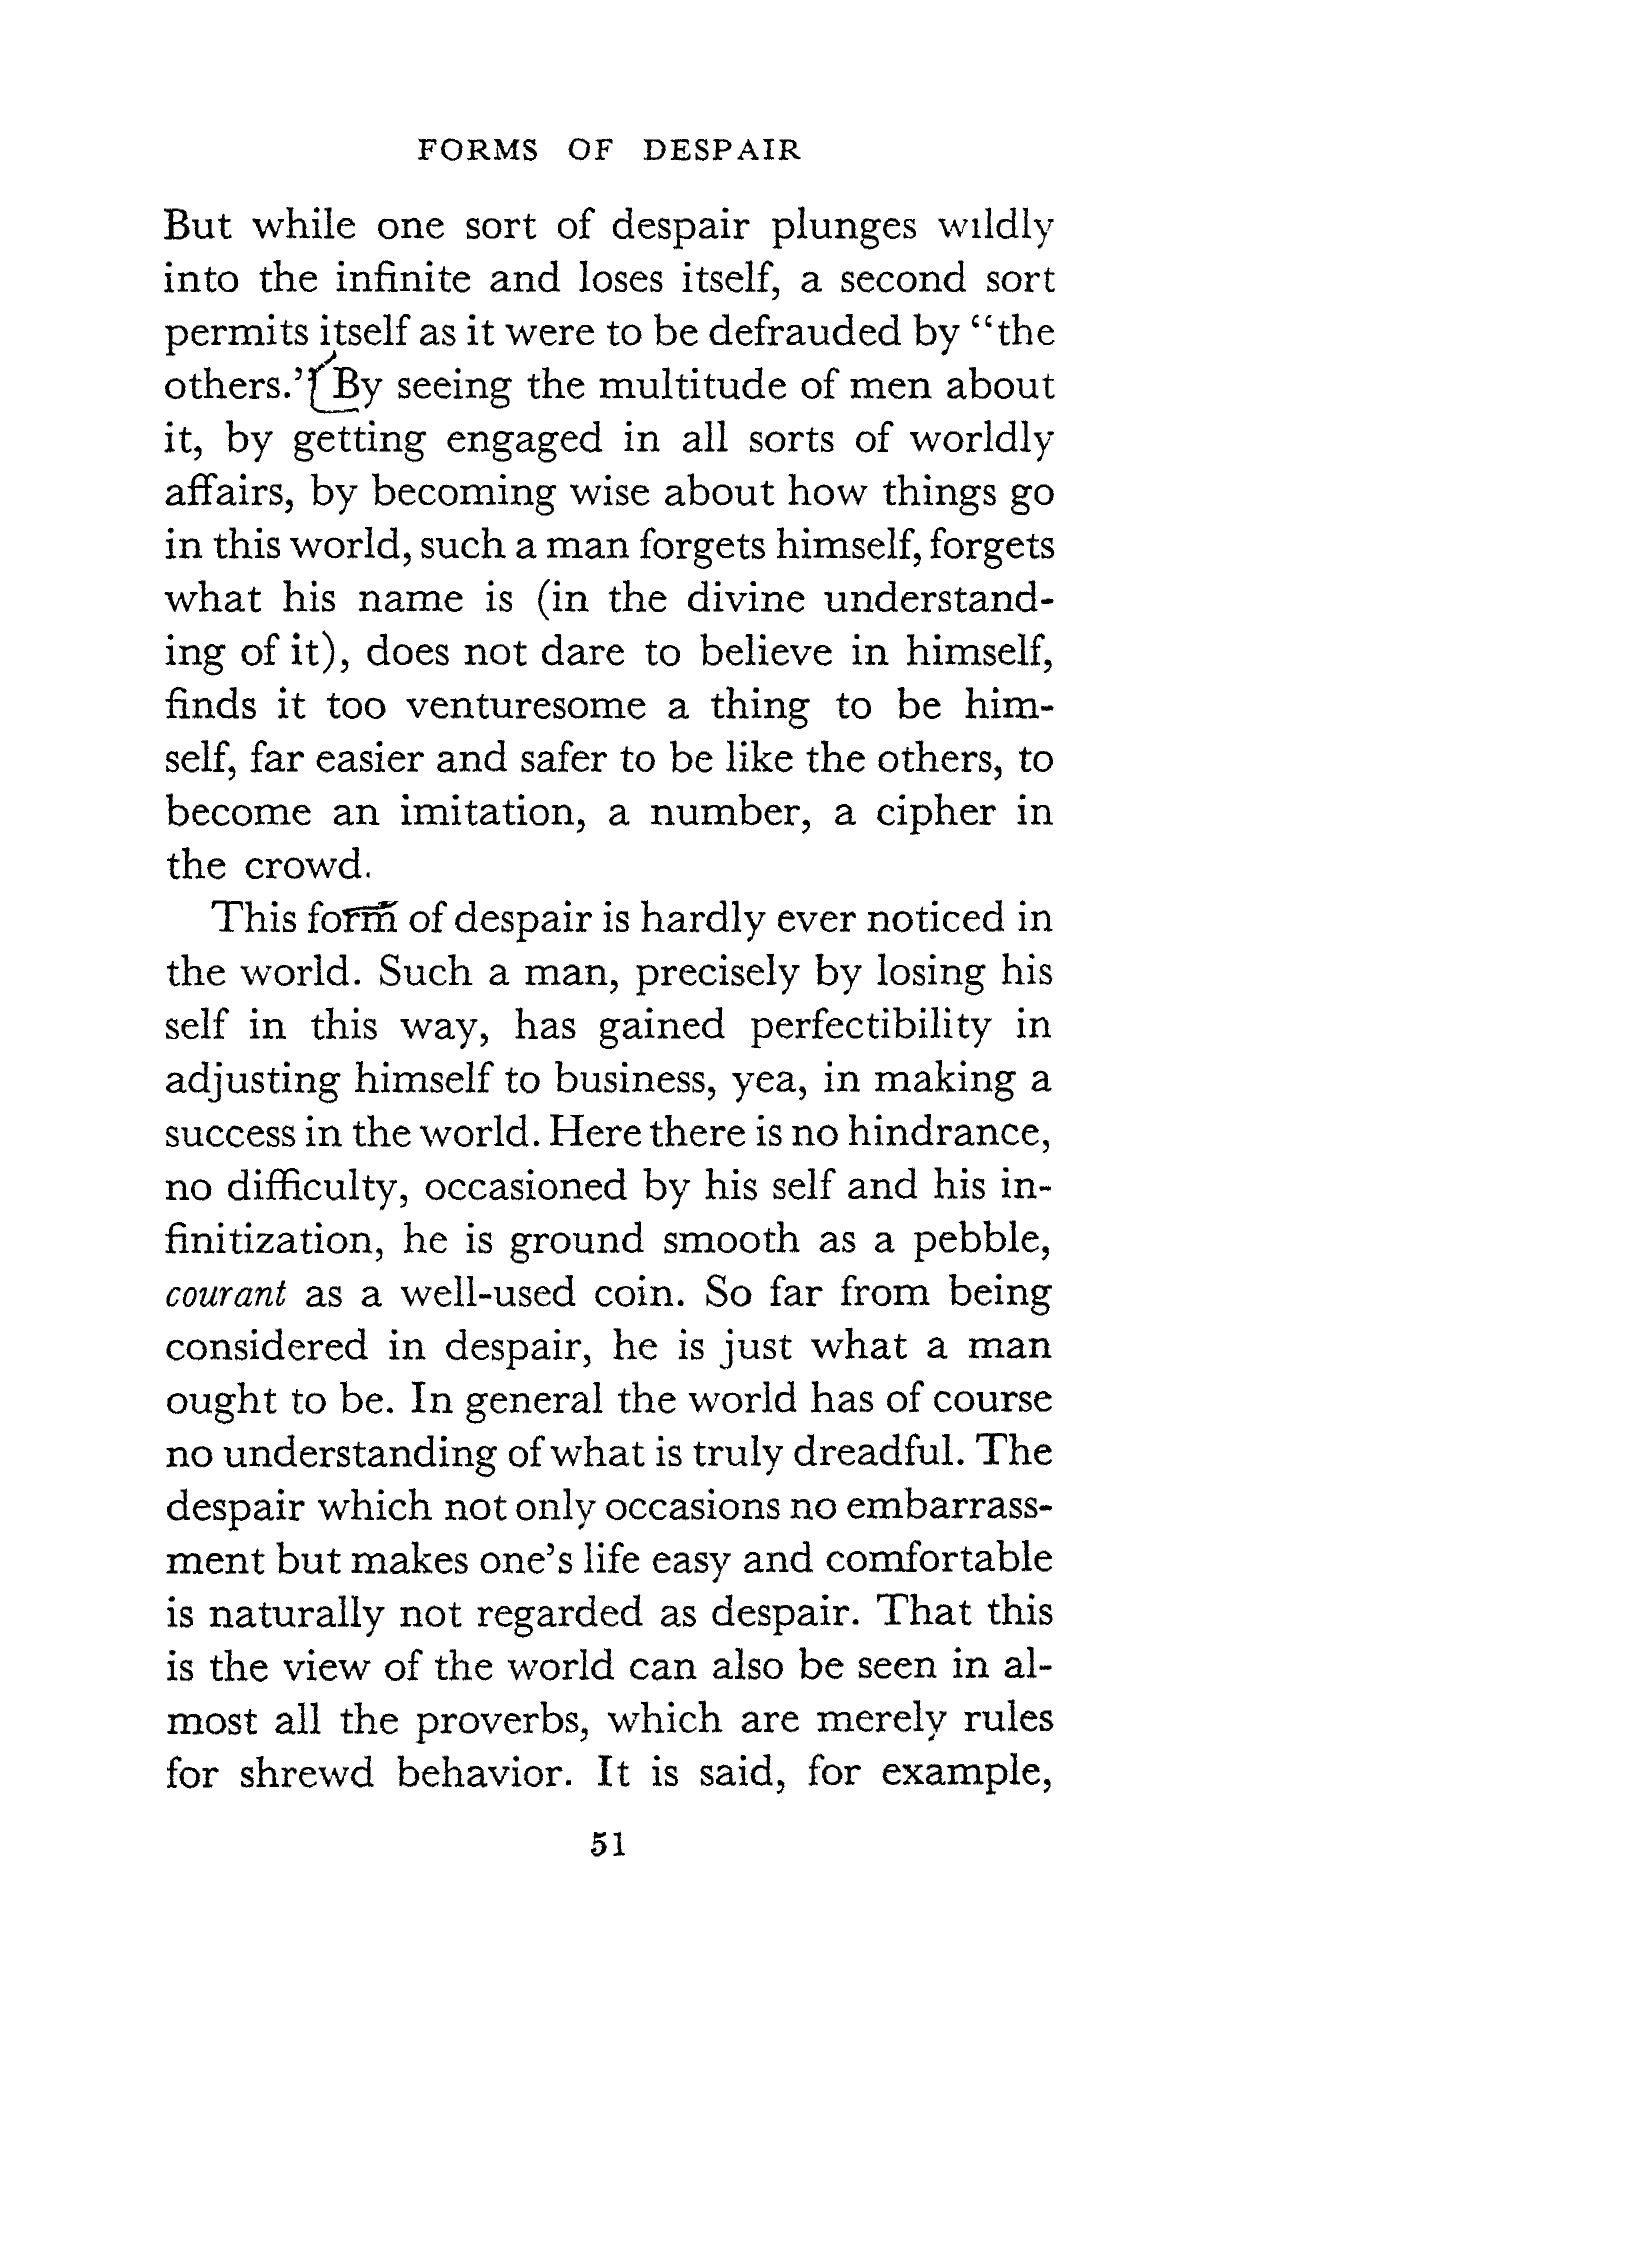 FORMS OF DESPAIR
But while one sort of despair plunges wildly
into the infinite and loses itself, a second sort
permits itself as it were to be defrauded by “the
others.” By seeing the multitude of men about
it, by getting engaged in all sorts of worldly
affairs, by becoming wise about how things go
in this world, such a man forgets himself, forgets
what his name is (in the divine understand-
ing of it), does not dare to believe in himself,
finds it too venturesome a thing to be him-
self, far easier and safer to be like the others, to
become an imitation, a number, a cipher in
the crowd.
This form of despair is hardly ever noticed in
the world. Such a man, precisely by losing his
self in this way, has gained perfectibility in
adjusting himself to business, yea, in making a
success in the world. Here there is no hindrance,
no difficulty, occasioned by his self and his in-
finitization, he is ground smooth as a pebble,
courant as a well-used coin. So far from being
considered in despair, he is just what a man
ought to be. In general the world has of course
no understanding of what is truly dreadful. The
despair which not only occasions no embarrass-
ment but makes one’s life easy and comfortable
is naturally not regarded as despair. That this
is the view of the world can also be seen in al-
most all the proverbs, which are merely rules
for shrewd behavior. It is said, for example,
51